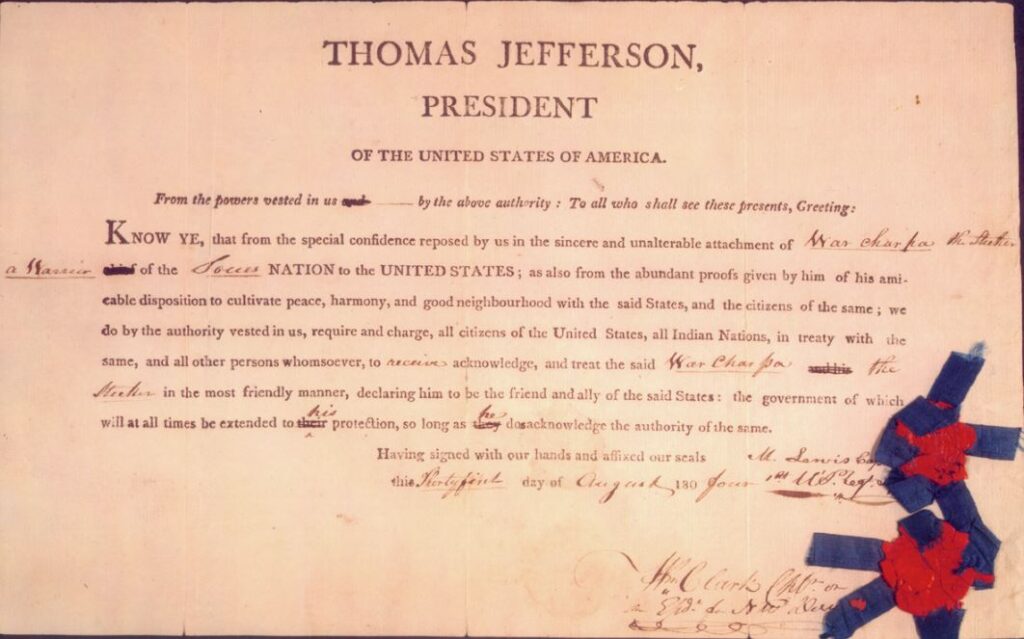 THOMAS JEFFERSON,
PRESIDENT
OF THE UNITED STATES OF AMERICA.
From the powers vested in us and by the above authority: To all who shall see these presents, Greeting:
KNOW YE, that from the special confidence reposed by us in the sincere and unalterable attachment of War char pa the Sticker
a Warrior chief of the Soues NATION to the UNITED STATES; as also from the abundant proofs given by him of his ami-
cable disposition to cultivate peace, harmony, and good neighbourhood with the said States, and the citizens of the same; we
do by the authority vested in us, require and charge, all citizens of the United States, all Indian Nations, in treaty with the
same, and all other persons whomsoever, to receive acknowledge, and treat the said War Char pa and his the
Sticker in the most friendly manner, declaring him to be the friend and ally of the said States: the government of which
will at all times be extended to their his protection, so long as they he do acknowledge the authority of the same.
Having signed with our hands and affixed our seals M. Lewis Capt
this day of August 180 four 1st U'S. Regt.
Wm Clark Cptn on